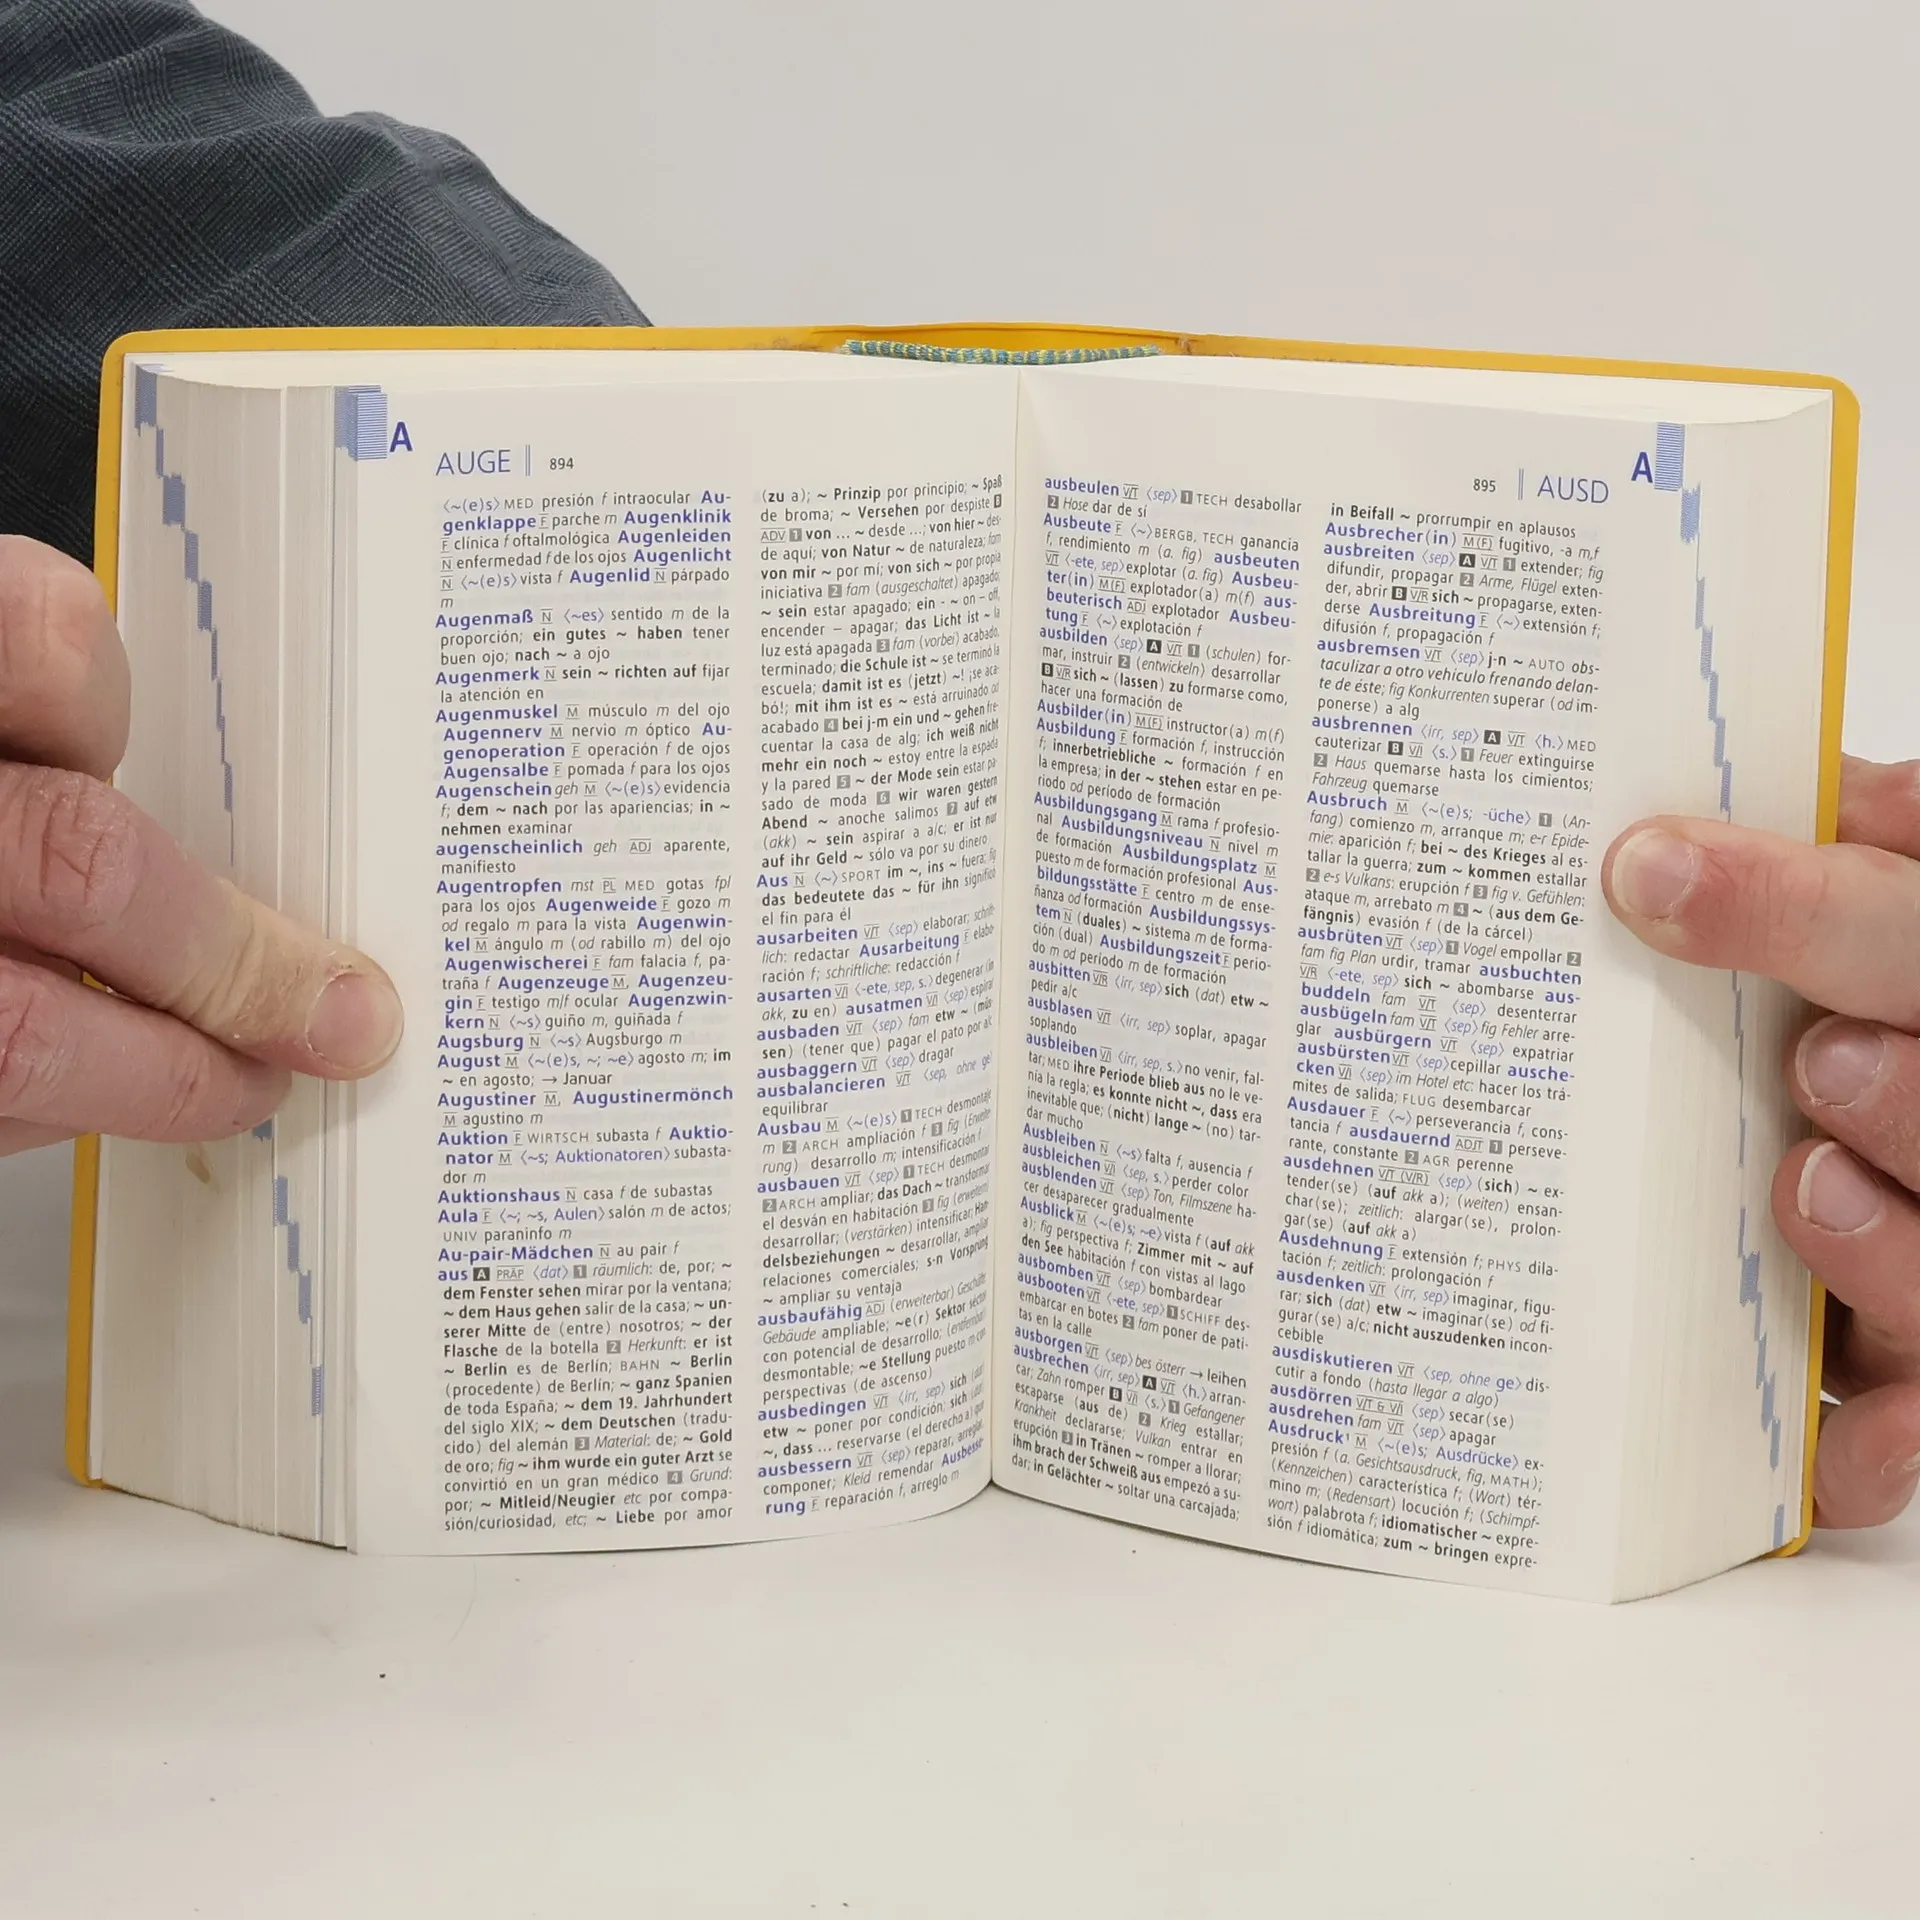 A
AUGE
894
⟨~(e)s⟩ MED presión f intraocular Au-
genklappe F parche m Augenklinik
F clínica f oftalmológica Augenleiden
N enfermedad f de los ojos Augenlicht
N ⟨~(e)s⟩ vista f Augenlid N párpado
m
Augenmaß N ⟨~es⟩ sentido m de la
proporción; ein gutes ~ haben tener
buen ojo; nach ~ a ojo
Augenmerk N sein ~ richten auf fijar
la atención en
Augenmuskel M músculo m del ojo
Augennerv M nervio m óptico Au-
genoperation F operación f de ojos
Augensalbe F pomada f para los ojos
Augenschein geh M ⟨~(e)s⟩ evidencia
f; dem ~ nach por las apariencias; in ~
nehmen examinar
augenscheinlich geh ADJ aparente,
manifiesto
Augentropfen mst PL MED gotas fpl
para los ojos Augenweide F gozo m
od regalo m para la vista Augenwin-
kel M ángulo m (od rabillo m) del ojo
Augenwischerei F fam falacia f, pa-
traña f Augenzeuge M, Augenzeu-
gin F testigo m/f ocular Augenzwin-
kern N ⟨~s⟩ guiño m, guiñada f
Augsburg N ⟨~s⟩ Augsburgo m
August M ⟨~(e)s, ~; ~e⟩ agosto m; im
~ en agosto; → Januar
Augustiner M, Augustinermönch
M agustino m
Auktion F WIRTSCH subasta f Auktio-
nator M ⟨~s; Auktionatoren⟩ subasta-
dor m
Auktionshaus N casa f de subastas
Aula F ⟨~; ~s, Aulen⟩ salón m de actos;
UNIV paraninfo m
Au-pair-Mädchen N au pair f
aus A PRÄP ⟨dat⟩ 1 räumlich: de, por; ~
dem Fenster sehen mirar por la ventana;
~ dem Haus gehen salir de la casa; ~ un-
serer Mitte de (entre) nosotros; ~ der
Flasche de la botella 2 Herkunft: er ist
~ Berlin es de Berlín; BAHN ~ Berlin
(procedente) de Berlín; ~ ganz Spanien
de toda España; ~ dem 19. Jahrhundert
del siglo XIX; ~ dem Deutschen (tradu-
cido) del alemán 3 Material: de; ~ Gold
de oro; fig ~ ihm wurde ein guter Arzt se
convirtió en un gran médico 4 Grund:
por; ~ Mitleid/Neugier etc por compa-
sión/curiosidad, etc; ~ Liebe por amor
(zu a); ~ Prinzip por principio; ~ Spaß
de broma; ~ Versehen por despiste B
ADV 1 von ... ~ desde ...; von hier ~ des-
de aquí; von Natur ~ de naturaleza; fam
von mir ~ por mí; von sich ~ por propia
iniciativa 2 fam (ausgeschaltet) apagado;
~ sein estar apagado; ein - ~ on – off,
encender – apagar; das Licht ist ~ la
luz está apagada 3 fam (vorbei) acabado,
terminado; die Schule ist ~ se terminó la
escuela; damit ist es (jetzt) ~! ¡se aca-
bó!; mit ihm ist es ~ está arruinado od
acabado 4 bei j-m ein und ~ gehen fre-
cuentar la casa de alg; ich weiß nicht
mehr ein noch ~ estoy entre la espada
y la pared 5 ~ der Mode sein estar pa-
sado de moda 6 wir waren gestern
Abend ~ anoche salimos 7 auf etw
(akk) ~ sein aspirar a a/c; er ist nur
auf ihr Geld ~ sólo va por su dinero
Aus N ⟨~⟩ SPORT im ~, ins ~ fuera; fig
das bedeutete das ~ für ihn significó
el fin para él
ausarbeiten V/T ⟨sep⟩ elaborar; schrift-
lich: redactar Ausarbeitung F elabo-
ración f; schriftliche: redacción f
ausarten V/I ⟨-ete, sep, s.⟩ degenerar (in
akk, zu en) ausatmen V/I ⟨sep⟩ espirar
ausbaden V/T ⟨sep⟩ fam etw ~ (müs-
sen) (tener que) pagar el pato por a/c
ausbaggern V/T ⟨sep⟩ dragar
ausbalancieren V/T ⟨sep, ohne ge⟩
equilibrar
Ausbau M ⟨~(e)s⟩ 1 TECH desmontaje
m 2 ARCH ampliación f 3 fig (Erweite-
rung) desarrollo m; intensificación f
ausbauen V/T ⟨sep⟩ 1 TECH desmontar
2 ARCH ampliar; das Dach ~ transformar
el desván en habitación 3 fig (erweitern)
desarrollar; (verstärken) intensificar; Han-
delsbeziehungen ~ desarrollar, ampliar
relaciones comerciales; s-n Vorsprung
~ ampliar su ventaja
ausbaufähig ADJ (erweiterbar) Geschäft,
Gebäude ampliable; ~e(r) Sektor sector
con potencial de desarrollo; (entfernbar)
desmontable; ~e Stellung puesto m con
perspectivas (de ascenso)
ausbedingen V/T ⟨irr, sep⟩ sich (dat)
etw ~ poner por condición; sich (dat)
~, dass ... reservarse (el derecho a) que
ausbessern V/T ⟨sep⟩ reparar, arreglar,
componer; Kleid remendar Ausbesse-
rung F reparación f, arreglo m
895
AUSD
A
ausbeulen V/T ⟨sep⟩ 1 TECH desabollar
2 Hose dar de sí
Ausbeute F ⟨~⟩ BERGB, TECH ganancia
f, rendimiento m (a. fig) ausbeuten
V/T ⟨-ete, sep⟩ explotar (a. fig) Ausbeu-
ter(in) M(F) explotador(a) m(f) aus-
beuterisch ADJ explotador Ausbeu-
tung F ⟨~⟩ explotación f
ausbilden ⟨sep⟩ A V/T 1 (schulen) for-
mar, instruir 2 (entwickeln) desarrollar
B V/R sich ~ (lassen) zu formarse como,
hacer una formación de
Ausbilder(in) M(F) instructor(a) m(f)
Ausbildung F formación f, instrucción
f; innerbetriebliche ~ formación f en
la empresa; in der ~ stehen estar en pe-
riodo od período de formación
Ausbildungsgang M rama f profesio-
nal Ausbildungsniveau N nivel m
de formación Ausbildungsplatz M
puesto m de formación profesional Aus-
bildungsstätte F centro m de ense-
ñanza od formación Ausbildungssys-
tem N (duales) ~ sistema m de forma-
ción (dual) Ausbildungszeit F perio-
do m od período m de formación
ausbitten V/R ⟨irr, sep⟩ sich (dat) etw ~
pedir a/c
ausblasen V/T ⟨irr, sep⟩ soplar, apagar
soplando
ausbleiben V/I ⟨irr, sep, s.⟩ no venir, fal-
tar; MED ihre Periode blieb aus no le ve-
nía la regla; es konnte nicht ~, dass era
inevitable que; (nicht) lange ~ (no) tar-
dar mucho
Ausbleiben N ⟨~s⟩ falta f, ausencia f
ausbleichen V/I ⟨sep, s.⟩ perder color
ausblenden V/T ⟨sep⟩ Ton, Filmszene ha-
cer desaparecer gradualmente
Ausblick M ⟨~(e)s; ~e⟩ vista f (auf akk
a); fig perspectiva f; Zimmer mit ~ auf
den See habitación f con vistas al lago
ausbomben V/T ⟨sep⟩ bombardear
ausbooten V/T ⟨-ete, sep⟩ 1 SCHIFF des-
embarcar en botes 2 fam poner de pati-
tas en la calle
ausborgen V/T ⟨sep⟩ bes österr → leihen
ausbrechen ⟨irr, sep⟩ A V/T ⟨h.⟩ arran-
car; Zahn romper B V/I ⟨s.⟩ 1 Gefangener
escaparse (aus de) 2 Krieg estallar;
Krankheit declararse; Vulkan entrar en
erupción 3 in Tränen ~ romper a llorar;
ihm brach der Schweiß aus empezó a su-
dar; in Gelächter ~ soltar una carcajada;
in Beifall ~ prorrumpir en aplausos
Ausbrecher(in) M(F) fugitivo, -a m,f
ausbreiten ⟨sep⟩ A V/T 1 extender; fig
difundir, propagar 2 Arme, Flügel exten-
der, abrir B V/R sich ~ propagarse, exten-
derse Ausbreitung F ⟨~⟩ extensión f;
difusión f, propagación f
ausbremsen V/T ⟨sep⟩ j-n ~ AUTO obs-
taculizar a otro vehículo frenando delan-
te de éste; fig Konkurrenten superar (od im-
ponerse) a alg
ausbrennen ⟨irr, sep⟩ A V/T ⟨h.⟩ MED
cauterizar B V/I ⟨s.⟩ 1 Feuer extinguirse
2 Haus quemarse hasta los cimientos;
Fahrzeug quemarse
Ausbruch M ⟨~(e)s; -üche⟩ 1 (An-
fang) comienzo m, arranque m; e-r Epide-
mie: aparición f; bei ~ des Krieges al es-
tallar la guerra; zum ~ kommen estallar
2 e-s Vulkans: erupción f 3 fig v. Gefühlen:
ataque m, arrebato m 4 ~ (aus dem Ge-
fängnis) evasión f (de la cárcel)
ausbrüten V/T ⟨sep⟩ 1 Vogel empollar 2
fam fig Plan urdir, tramar ausbuchten
V/R ⟨-ete, sep⟩ sich ~ abombarse aus-
buddeln fam V/T ⟨sep⟩ desenterrar
ausbügeln fam V/T ⟨sep⟩ fig Fehler arre-
glar ausbürgern V/T ⟨sep⟩ expatriar
ausbürsten V/T ⟨sep⟩ cepillar ausche-
cken V/I ⟨sep⟩ im Hotel etc: hacer los trá-
mites de salida; FLUG desembarcar
Ausdauer F ⟨~⟩ perseverancia f, cons-
tancia f ausdauernd ADJT 1 perseve-
rante, constante 2 AGR perenne
ausdehnen V/T (V/R) ⟨sep⟩ (sich) ~ ex-
tender(se) (auf akk a); (weiten) ensan-
char(se); zeitlich: alargar(se), prolon-
gar(se) (auf akk a)
Ausdehnung F extensión f; PHYS dila-
tación f; zeitlich: prolongación f
ausdenken V/T ⟨irr, sep⟩ imaginar, figu-
rar; sich (dat) etw ~ imaginar(se) od fi-
gurar(se) a/c; nicht auszudenken incon-
cebible
ausdiskutieren V/T ⟨sep, ohne ge⟩ dis-
cutir a fondo (hasta llegar a algo)
ausdörren V/T & V/I ⟨sep⟩ secar(se)
ausdrehen fam V/T ⟨sep⟩ apagar
Ausdruck¹ M ⟨~(e)s; Ausdrücke⟩ ex-
presión f (a. Gesichtsausdruck, fig, MATH);
(Kennzeichen) característica f; (Wort) tér-
mino m; (Redensart) locución f; (Schimpf-
wort) palabrota f; idiomatischer ~ expre-
sión f idiomática; zum ~ bringen expre-